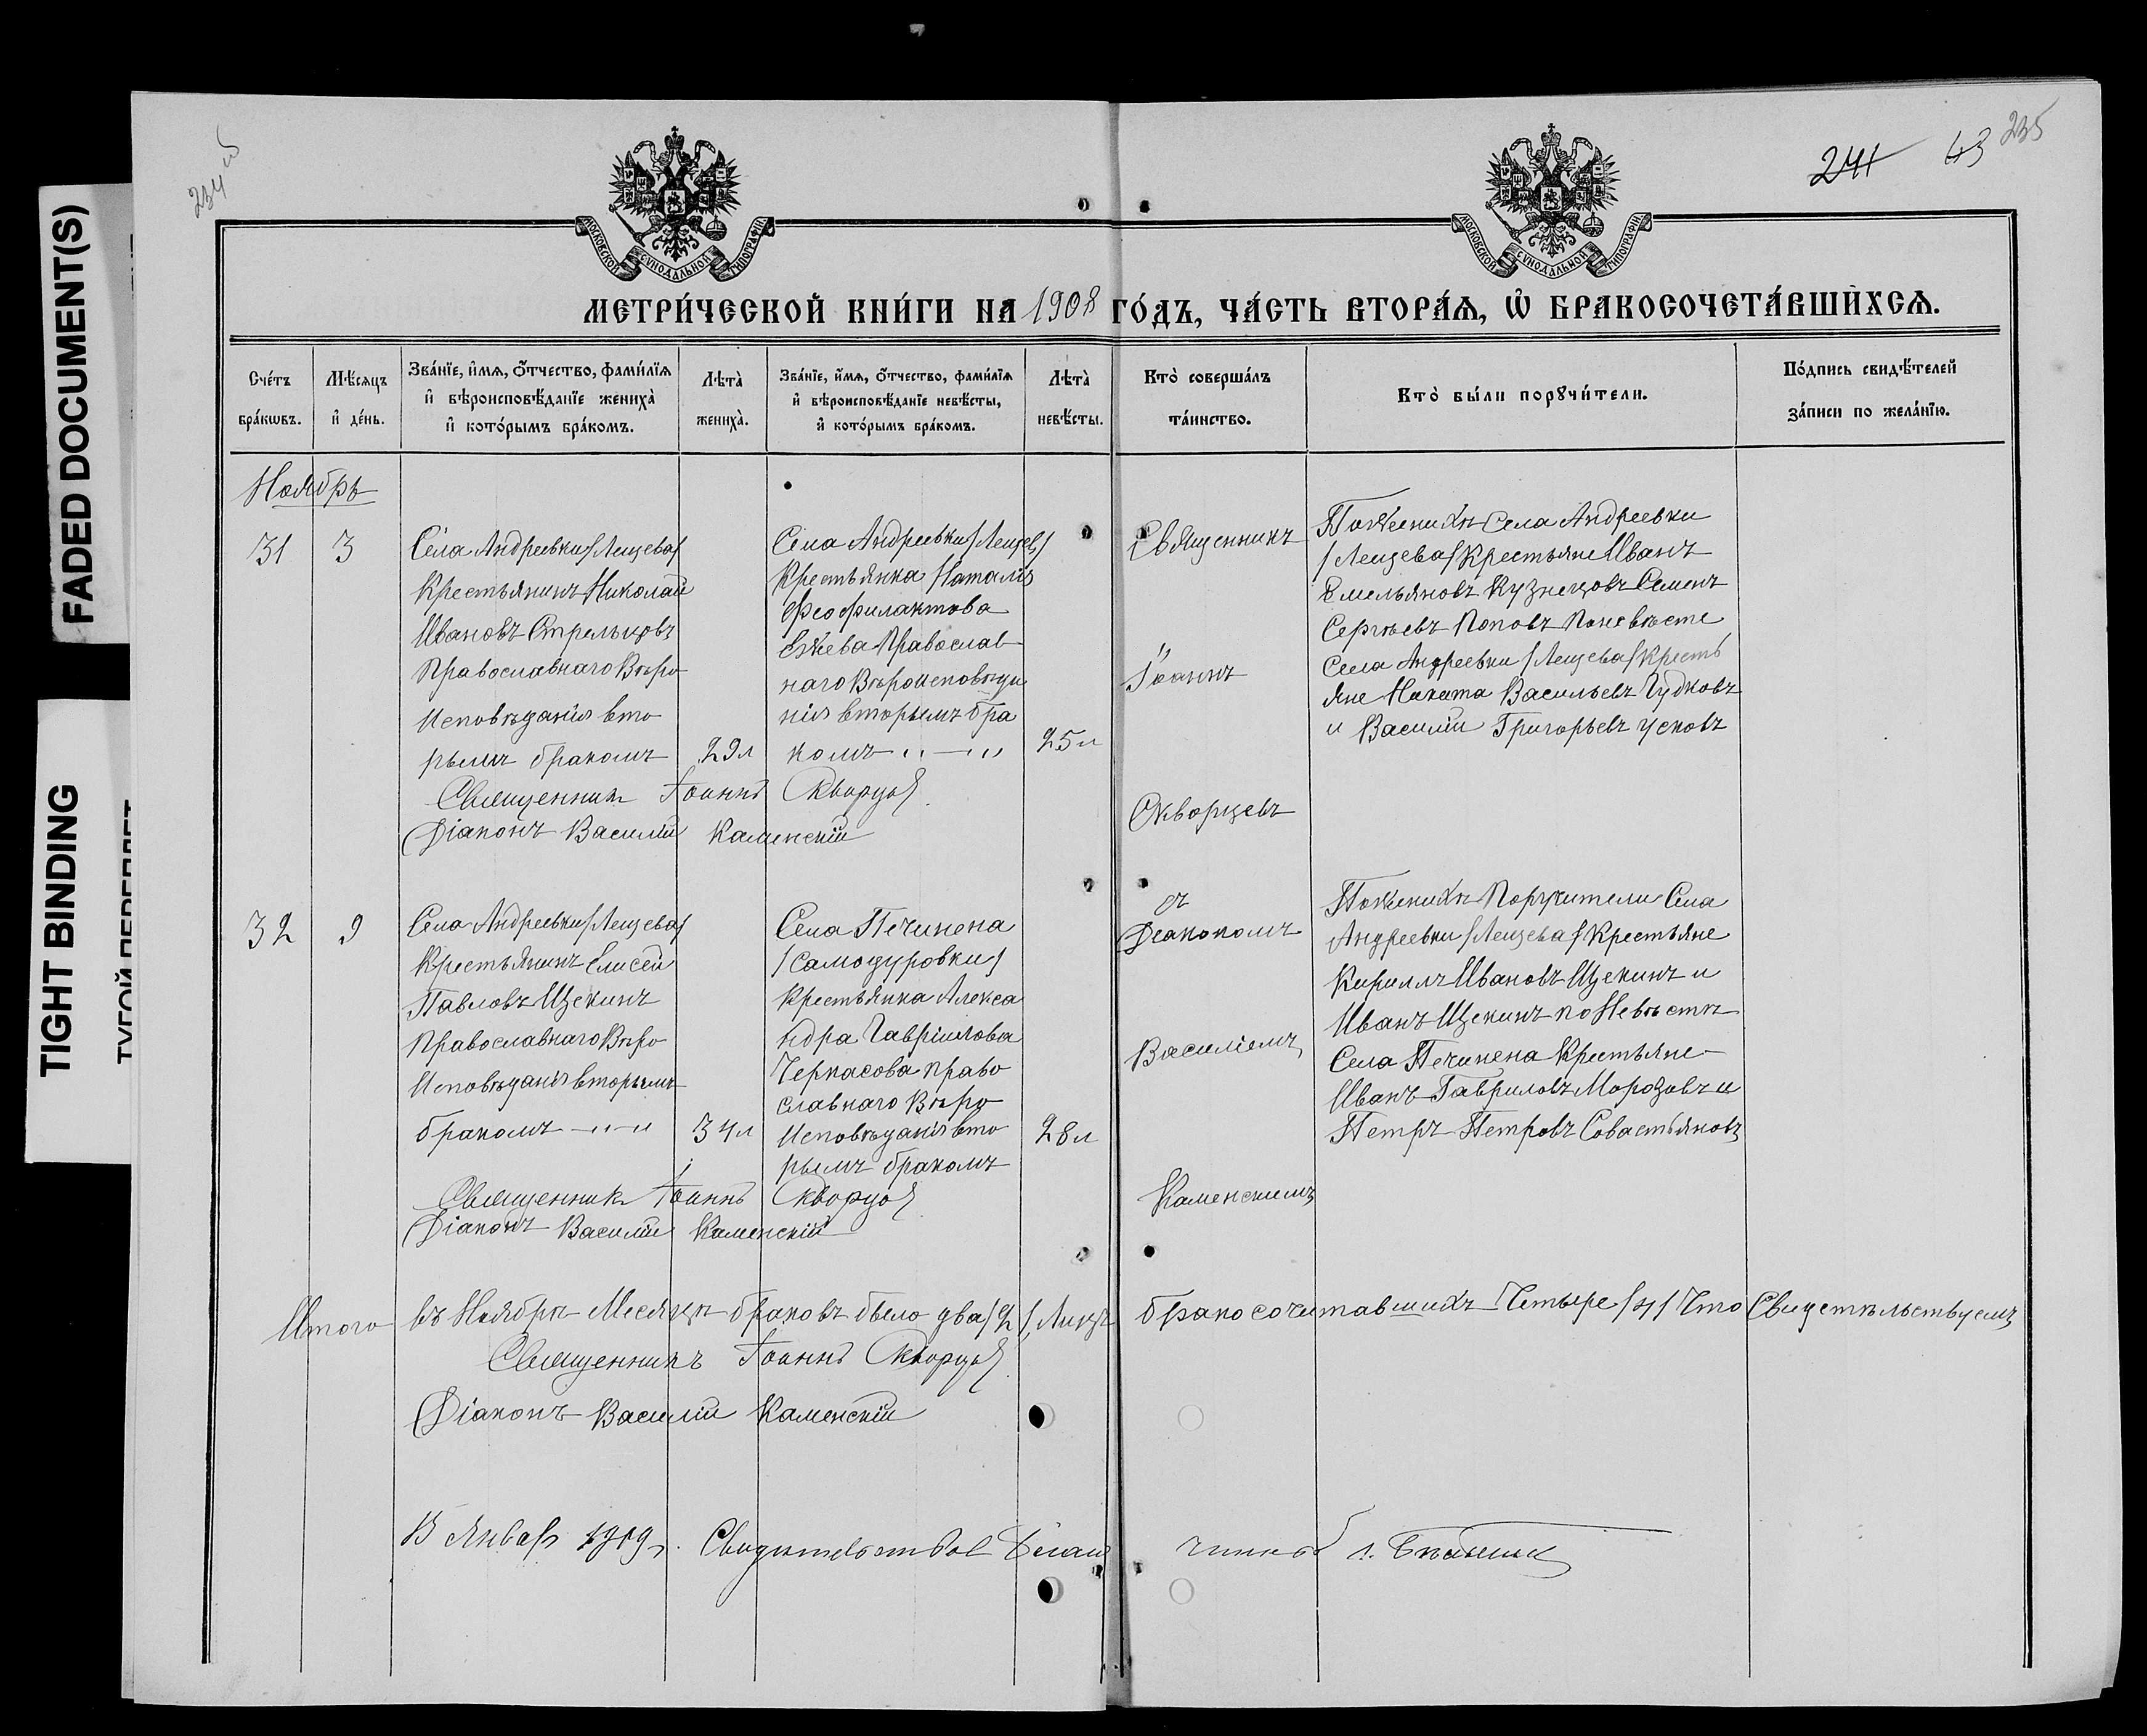 FADED DOCUMENT(S)
TIGHT BINDING
ТУГОЙ ПЕРЕПЛЕТ
234 об
241 43 235
МОСКОВСКОЙ СѴНОДАЛЬНОЙ ТИПОГРАФІИ
МОСКОВСКОЙ СѴНОДАЛЬНОЙ ТИПОГРАФІИ
МЕТРИ́ЧЕСКОЙ КНИ́ГИ НА 1908 ГО́ДЪ, ЧА́СТЬ ВТОРА́Ѧ, Ѡ҆ БРАКОСОЧЕТА́ВШИХСѦ.
Сче́тъ бра́кѡвъ.
Мѣ́сяцъ и҆ де́нь.
Зва́нїе, и҆́мѧ, ѻ҆́тчество, фами́лїѧ и҆ вѣроисповѣ́данїе жениха̀ и҆ кото́рымъ бра́комъ.
Лѣта̀ жениха̀.
Зва́нїе, и҆́мѧ, ѻ҆́тчество, фами́лїѧ и҆ вѣроисповѣ́данїе невѣ́сты, и҆ кото́рымъ бра́комъ.
Лѣта̀ невѣ́сты.
Кто̀ соверша́лъ та́инство.
Кто̀ бы́ли порꙋчи́тели.
По́дпись свидѣ́телей за́писи по жела́нїю.
Ноябрь
31
3
Села Андреевки /Лещева/
Крестьянинъ Николай
Ивановъ Стрельцовъ
Православнаго Вѣро
Исповѣданія вто
рымъ бракомъ
29л
Села Андреевки /Лещев/
Крестьянка Наталія
Феофилактова
Православ
наго Вѣроисповѣда
нія вторымъ бра
комъ
25л
Священникъ
Іоаннъ
Скворцевъ
По Женихѣ Села Андреевки
/Лещева/ Крестьяне Иванъ
Емельяновъ Кузнецовъ Семенъ
Сергѣевъ Поповъ По невѣсте
Села Андреевки /Лещева/ Кресть
яне Никита Васильевъ Гудковъ
и Василій Григорьевъ Усковъ
Священникъ Іоаннъ Скворцов
Діаконъ Василій Каменскій
32
9
Села Андреевки /Лещева/
Крестьянинъ Елисей
Павловъ Щекинъ
Православнаго Вѣро
Исповѣданія вторымъ
бракомъ
34л
Села Печинена
/Самодуровки/
Крестьянка Алекса
ндра Гавріилова
Черкасова право
славнаго Вѣро
Исповѣданія вто
рымъ бракомъ
28л
съ
Діакономъ
Василіемъ
Каменскимъ
По Женихѣ Поручители Села
Андреевки /Лещева/ Крестьяне
Кириллъ Ивановъ Щекинъ и
Иванъ Щекинъ по Невѣстѣ
Села Печинена Крестьяне
Иванъ Гавриловъ Морозовъ и
Петръ Петровъ Совастьяновъ
Священникъ Іоаннъ Скворцов
Діаконъ Василій Каменскій
Итого въ Ноябрѣ Месяцѣ браковъ было два /2/, Лицъ бракосочитавшихъ Четыре /4/ Что Свидетѣльствуемъ
Священникъ Іоаннъ Скворцов
Діаконъ Василій Каменскій
Январ 1909 г. Свидѣтельствовал Благочинный